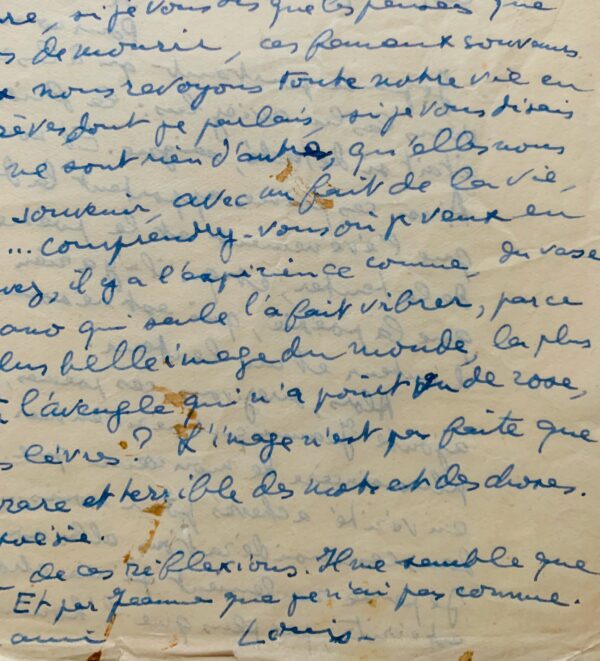 si je vous dis que les pensées que
de mourir, ces fameux souvenirs
nous revoyons toute notre vie en
rêves dont je parlais, si je vous disais
ne sont rien d'autre, qu'elles nous
souvenir, avec un fait de la vie,
... comprendrez-vous où je veux en
il y a l'expérience connue, du vase
qui seule l'a fait vibrer, parce
plus belle image du monde, la plus
l'aveugle qui n'a point vu de rose,
lèvres ? L'image n'est pas faite que
rare et terrible des mots et des choses.
poésie.
de ces réflexions. Il me semble que
Et par Jeanne que je n'ai pas connue.
ami Louis